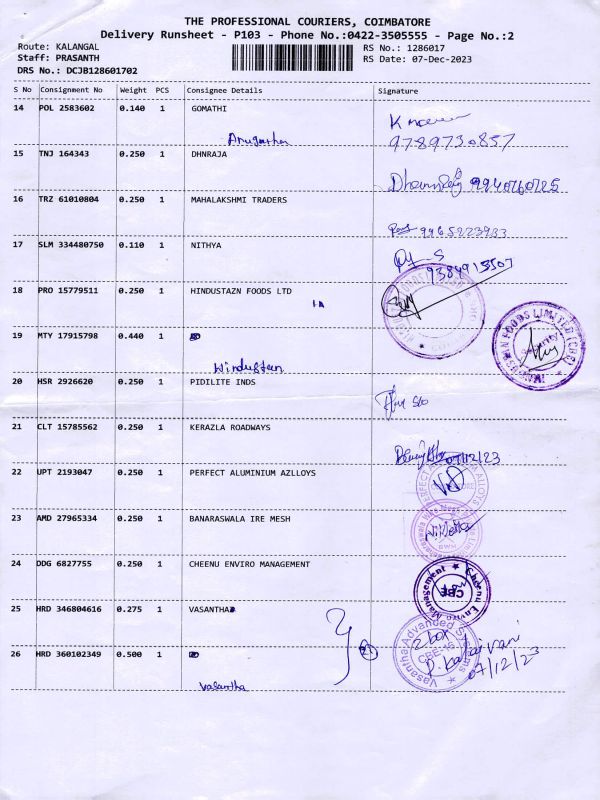 THE PROFESSIONAL COURIERS, COIMBATORE
Delivery Runsheet - P103 - Phone No.:0422-3505555 - Page No.:2
Route: KALANGAL
RS No.: 1286017
Staff: PRASANTH
RS Date: 07-Dec-2023
DRS No.: DCJB128601702
S No Consignment No Weight PCS Consignee Details Signature
14 POL 2583602 0.140 1 GOMATHI
9789730857
15 TNJ 164343 0.250 1 DHNRAJA
9940760725
16 TRZ 61010804 0.250 1 MAHALAKSHMI TRADERS
9965223983
17 SLM 334480750 0.110 1 NITHYA
9384913507
18 PRO 15779511 0.250 1 HINDUSTAZN FOODS LTD
19 MTY 17915798 0.440 1
Hindustan
20 HSR 2926620 0.250 1 PIDILITE INDS
21 CLT 15785562 0.250 1 KERAZLA ROADWAYS
07/12/23
22 UPT 2193047 0.250 1 PERFECT ALUMINIUM AZLLOYS
23 AMD 27965334 0.250 1 BANARASWALA IRE MESH
24 DDG 6827755 0.250 1 CHEENU ENVIRO MANAGEMENT
Cheenu Enviro Management
CBE
25 HRD 346804616 0.275 1 VASANTHA
Vasantha Advanced Systems
CBE-16
2 box
07/12/23
26 HRD 360102349 0.500 1
Vasantha